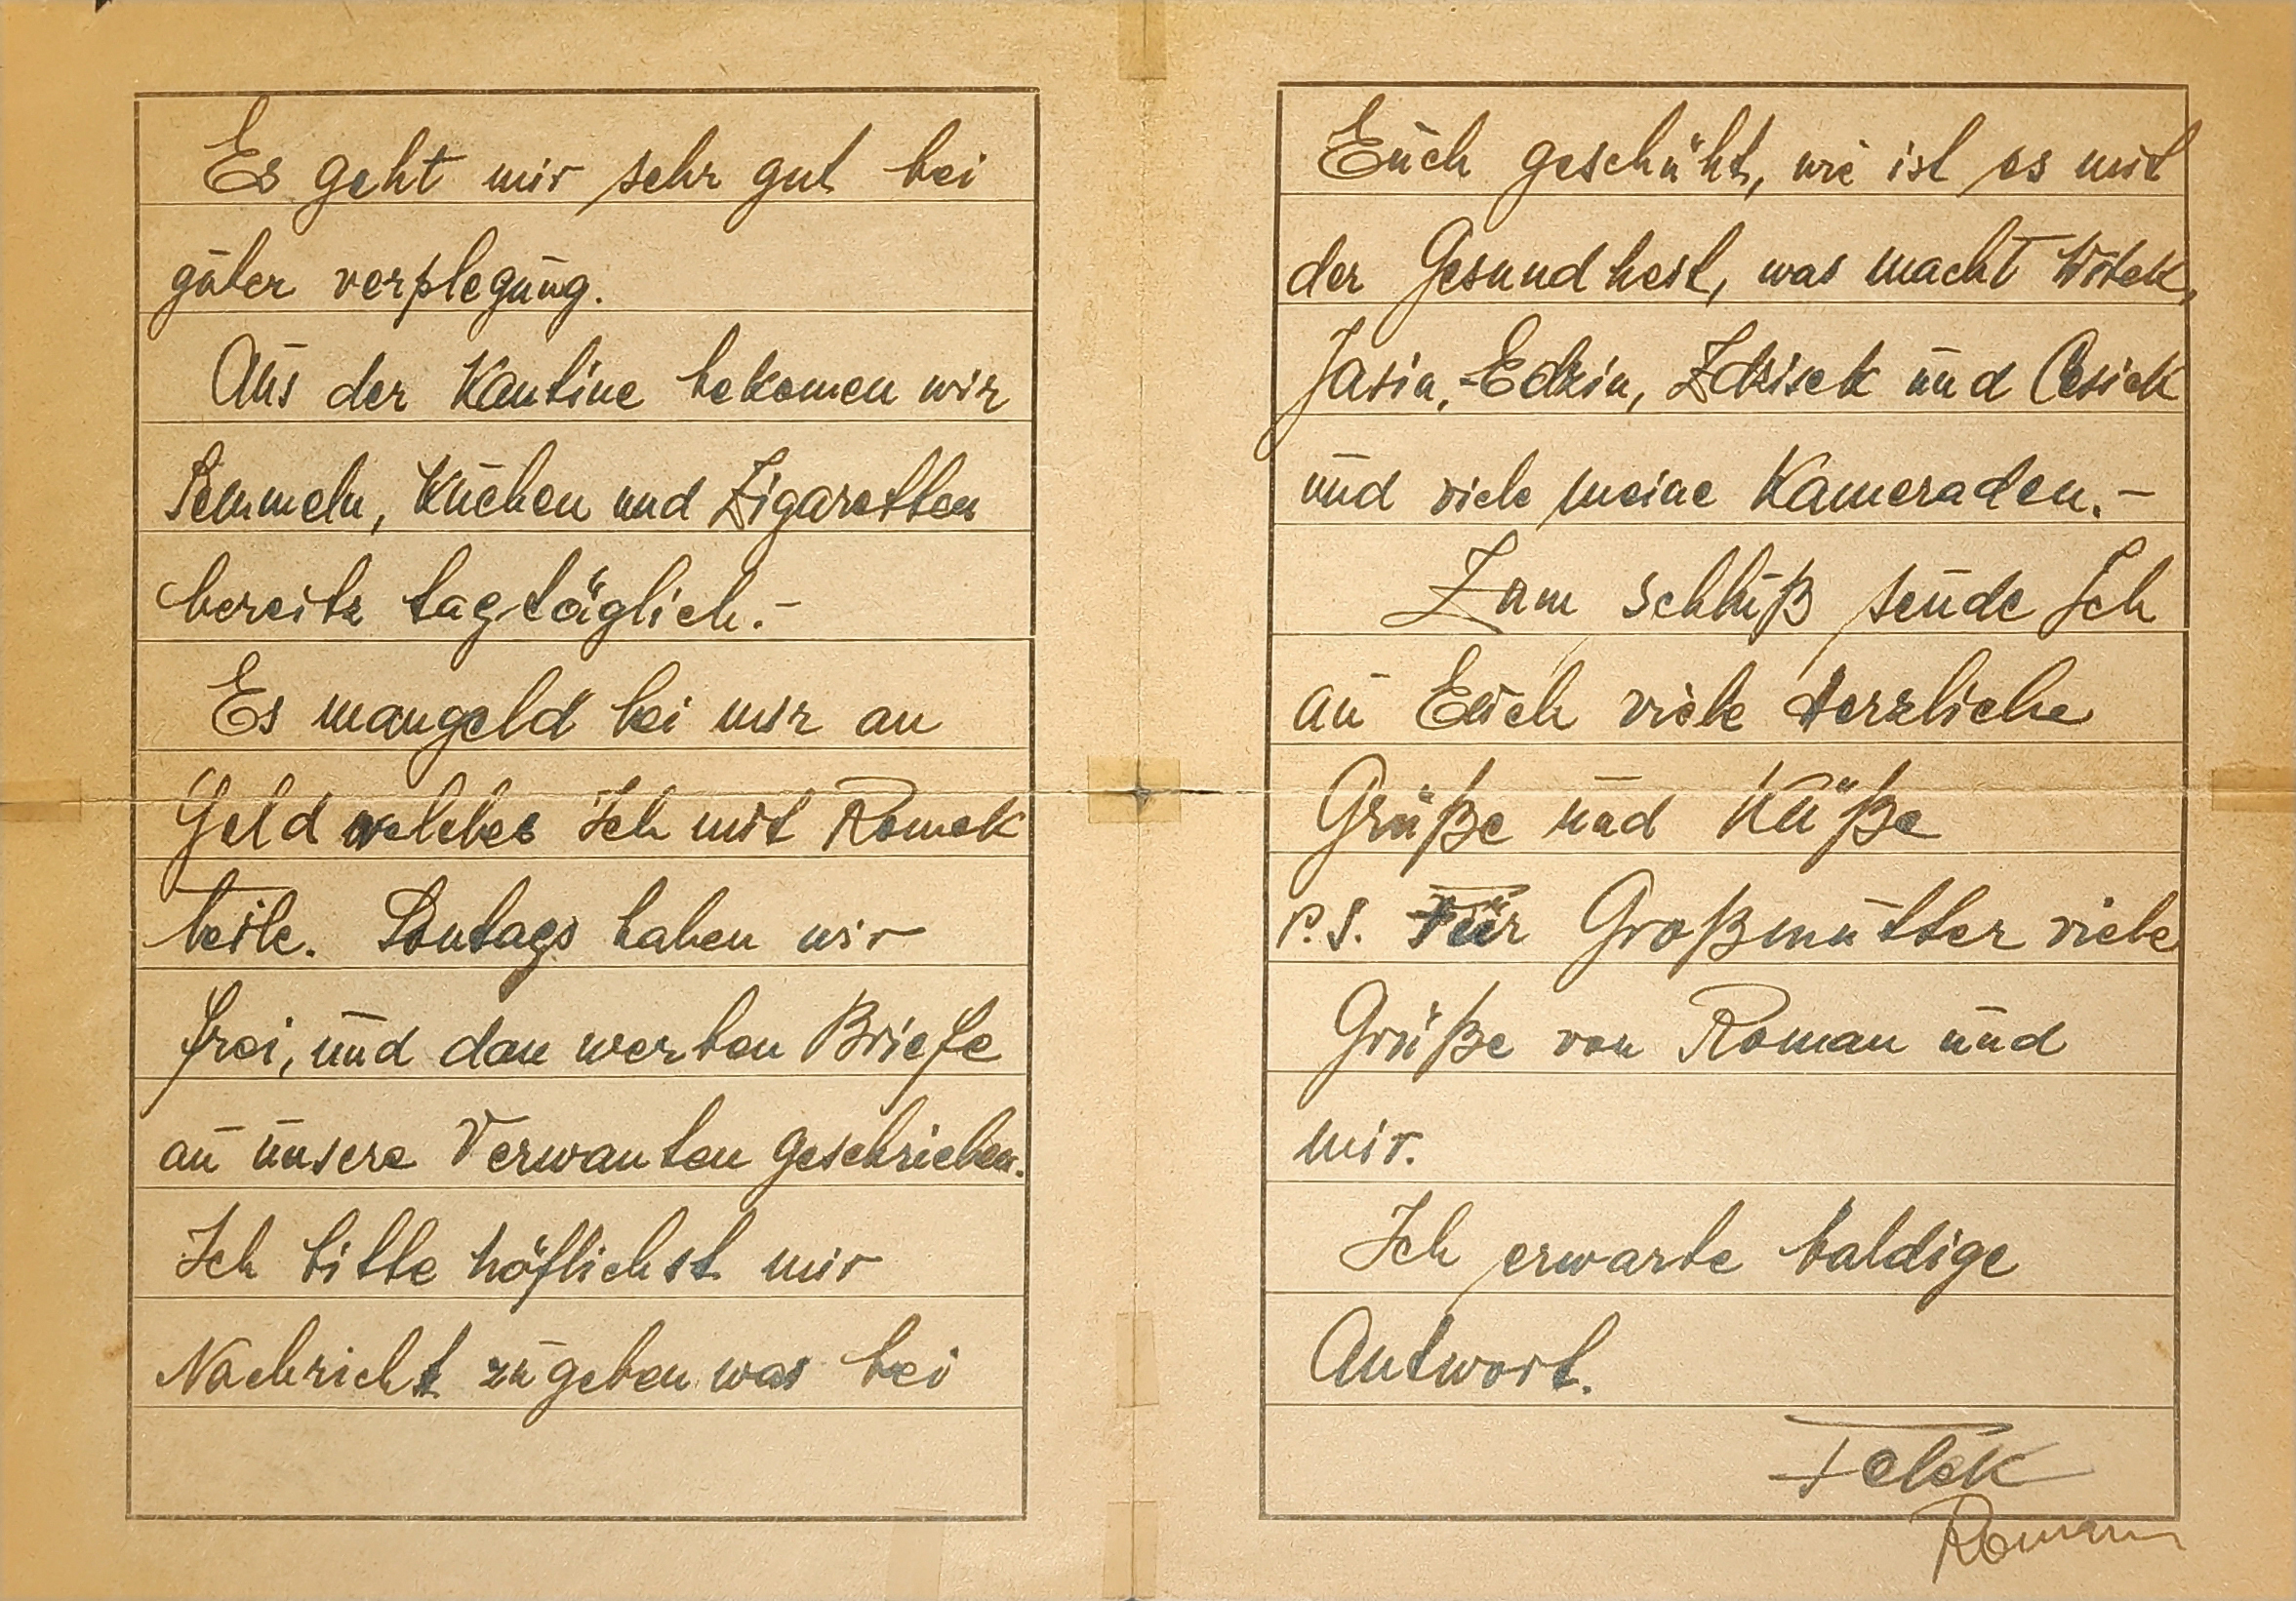 Es geht mir sehr gut bei
guter verplegung.
Aus der Kantine bekomen wir
Semmeln, Kuchen und Zigaretten
bereitz tagtäglich.-
Es mangeld bei mir an
Geld welches Ich mit Romek
teile. Sontags haben wir
frei, und dan werten Briefe
an unsere Verwanten geschrieben.
Ich bitte höflichst mir
Nachricht zu geben was bei
Euch geschüht, wie ist es mit
der Gesundheit, was macht Witek,
Jasia, Edzia, Zdzisek und Cesiek
und viele meine Kameraden.-
Zum schluß sende Ich
an Euch viele Herzliche
Grüße und Küße
P.S. Für Großmutter viele
Grüße von Roman und
mir.
Ich erwarte baldige
Antwort.
Felek
Roman